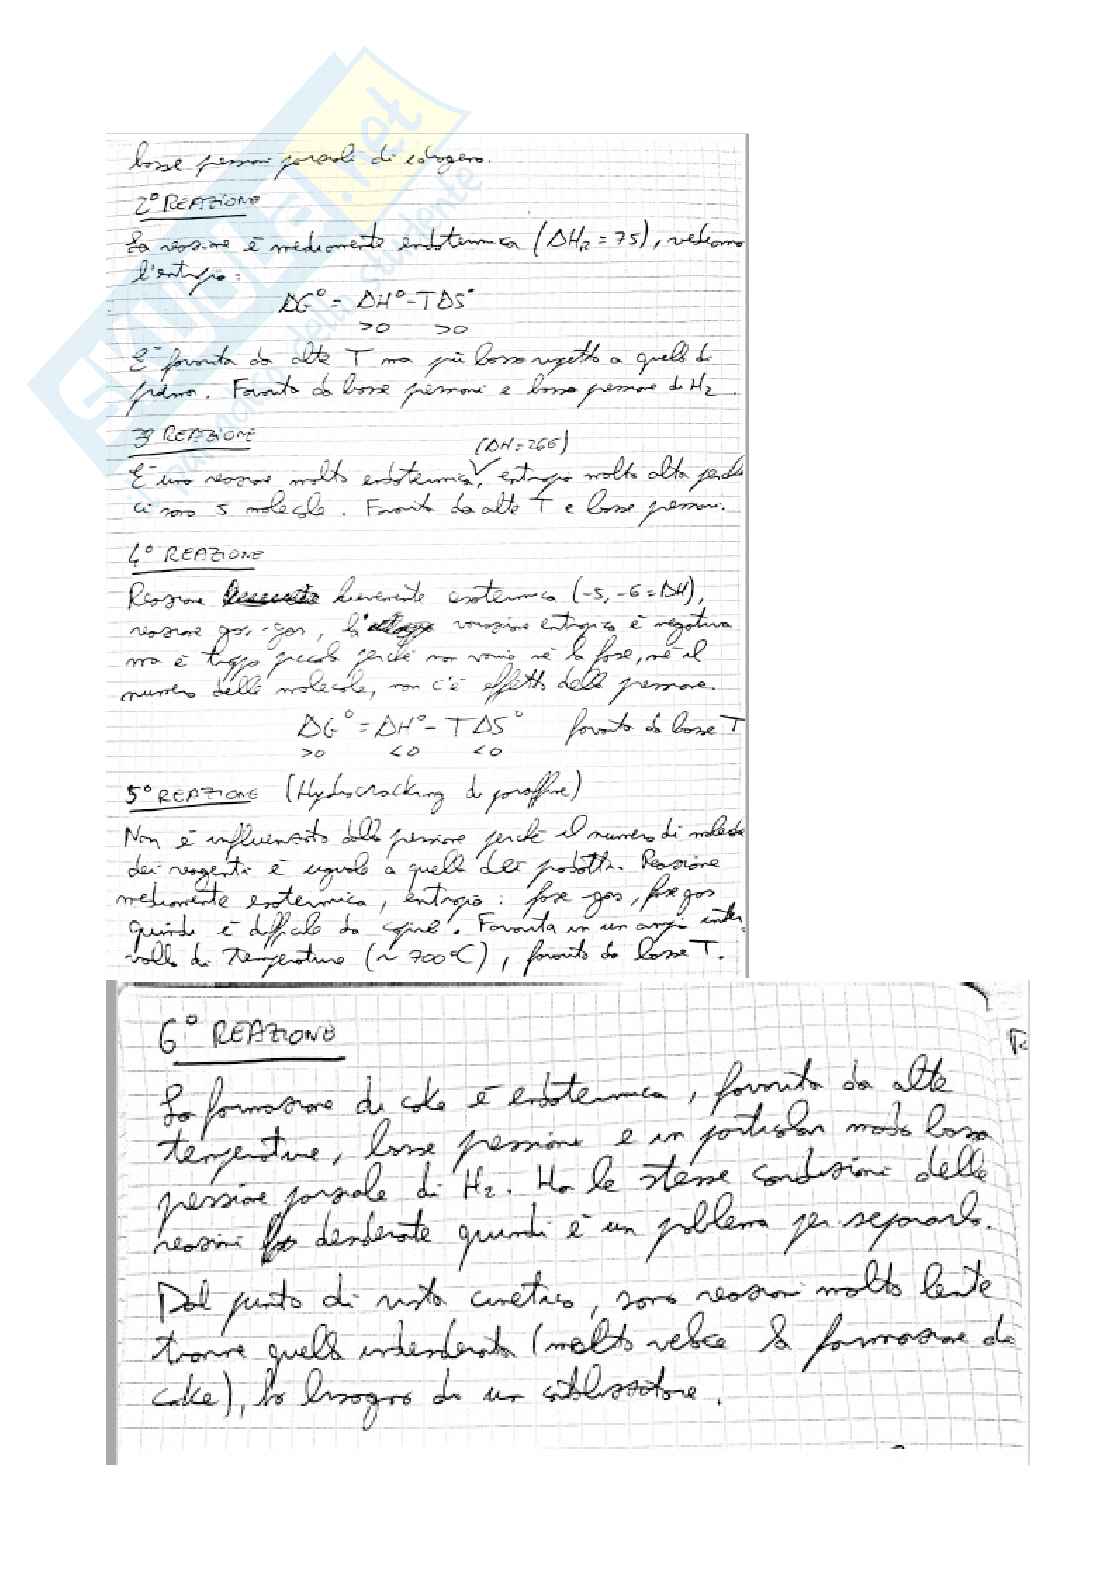 basse pressioni parziali di idrogeno.
2° REAZIONE
La reazione è mediamente endotermica (ΔHR = 75), vediamo
l'entropia:
ΔG° = ΔH° - TΔS°
>0 >0
E' favorita da alte T ma più basse rispetto a quelle di
prima. Favorita da basse pressioni e basse pressioni di H2
3° REAZIONE
(ΔH = 266)
E' una reazione molto endotermica, entropia molto alta perché
ci sono 5 molecole. Favorita da alte T e basse pressioni.
4° REAZIONE
Reazione lievemente esotermica (-5, -6 = ΔH),
reazione gas-gas, la variazione entropica è negativa
ma è troppo piccola perché non varia né la fase, né il
numero delle molecole, non c'è effetto della pressione.
ΔG° = ΔH° - TΔS° favorita da basse T
>0 <0 <0
5° REAZIONE (Hydrocracking di paraffine)
Non è influenzata dalla pressione perché il numero di molecole
dei reagenti è uguale a quello dei prodotti. Reazione
mediamente esotermica, entropia: fase gas, fase gas
quindi è difficile da capire. Favorita in un ampio inter-
vallo di temperature (~ 700°C), favorita da basse T.
6° REAZIONE
La formazione di coke è endotermica, favorita da alte
temperature, basse pressioni e in particolar modo bassa
pressione parziale di H2. Ha le stesse condizioni delle
reazioni desiderate quindi è un problema per separarlo.
Dal punto di vista cinetico, sono reazioni molto lente
tranne quella indesiderata (molto veloce la formazione di
coke), ho bisogno di un catalizzatore.
SKUOLA.net